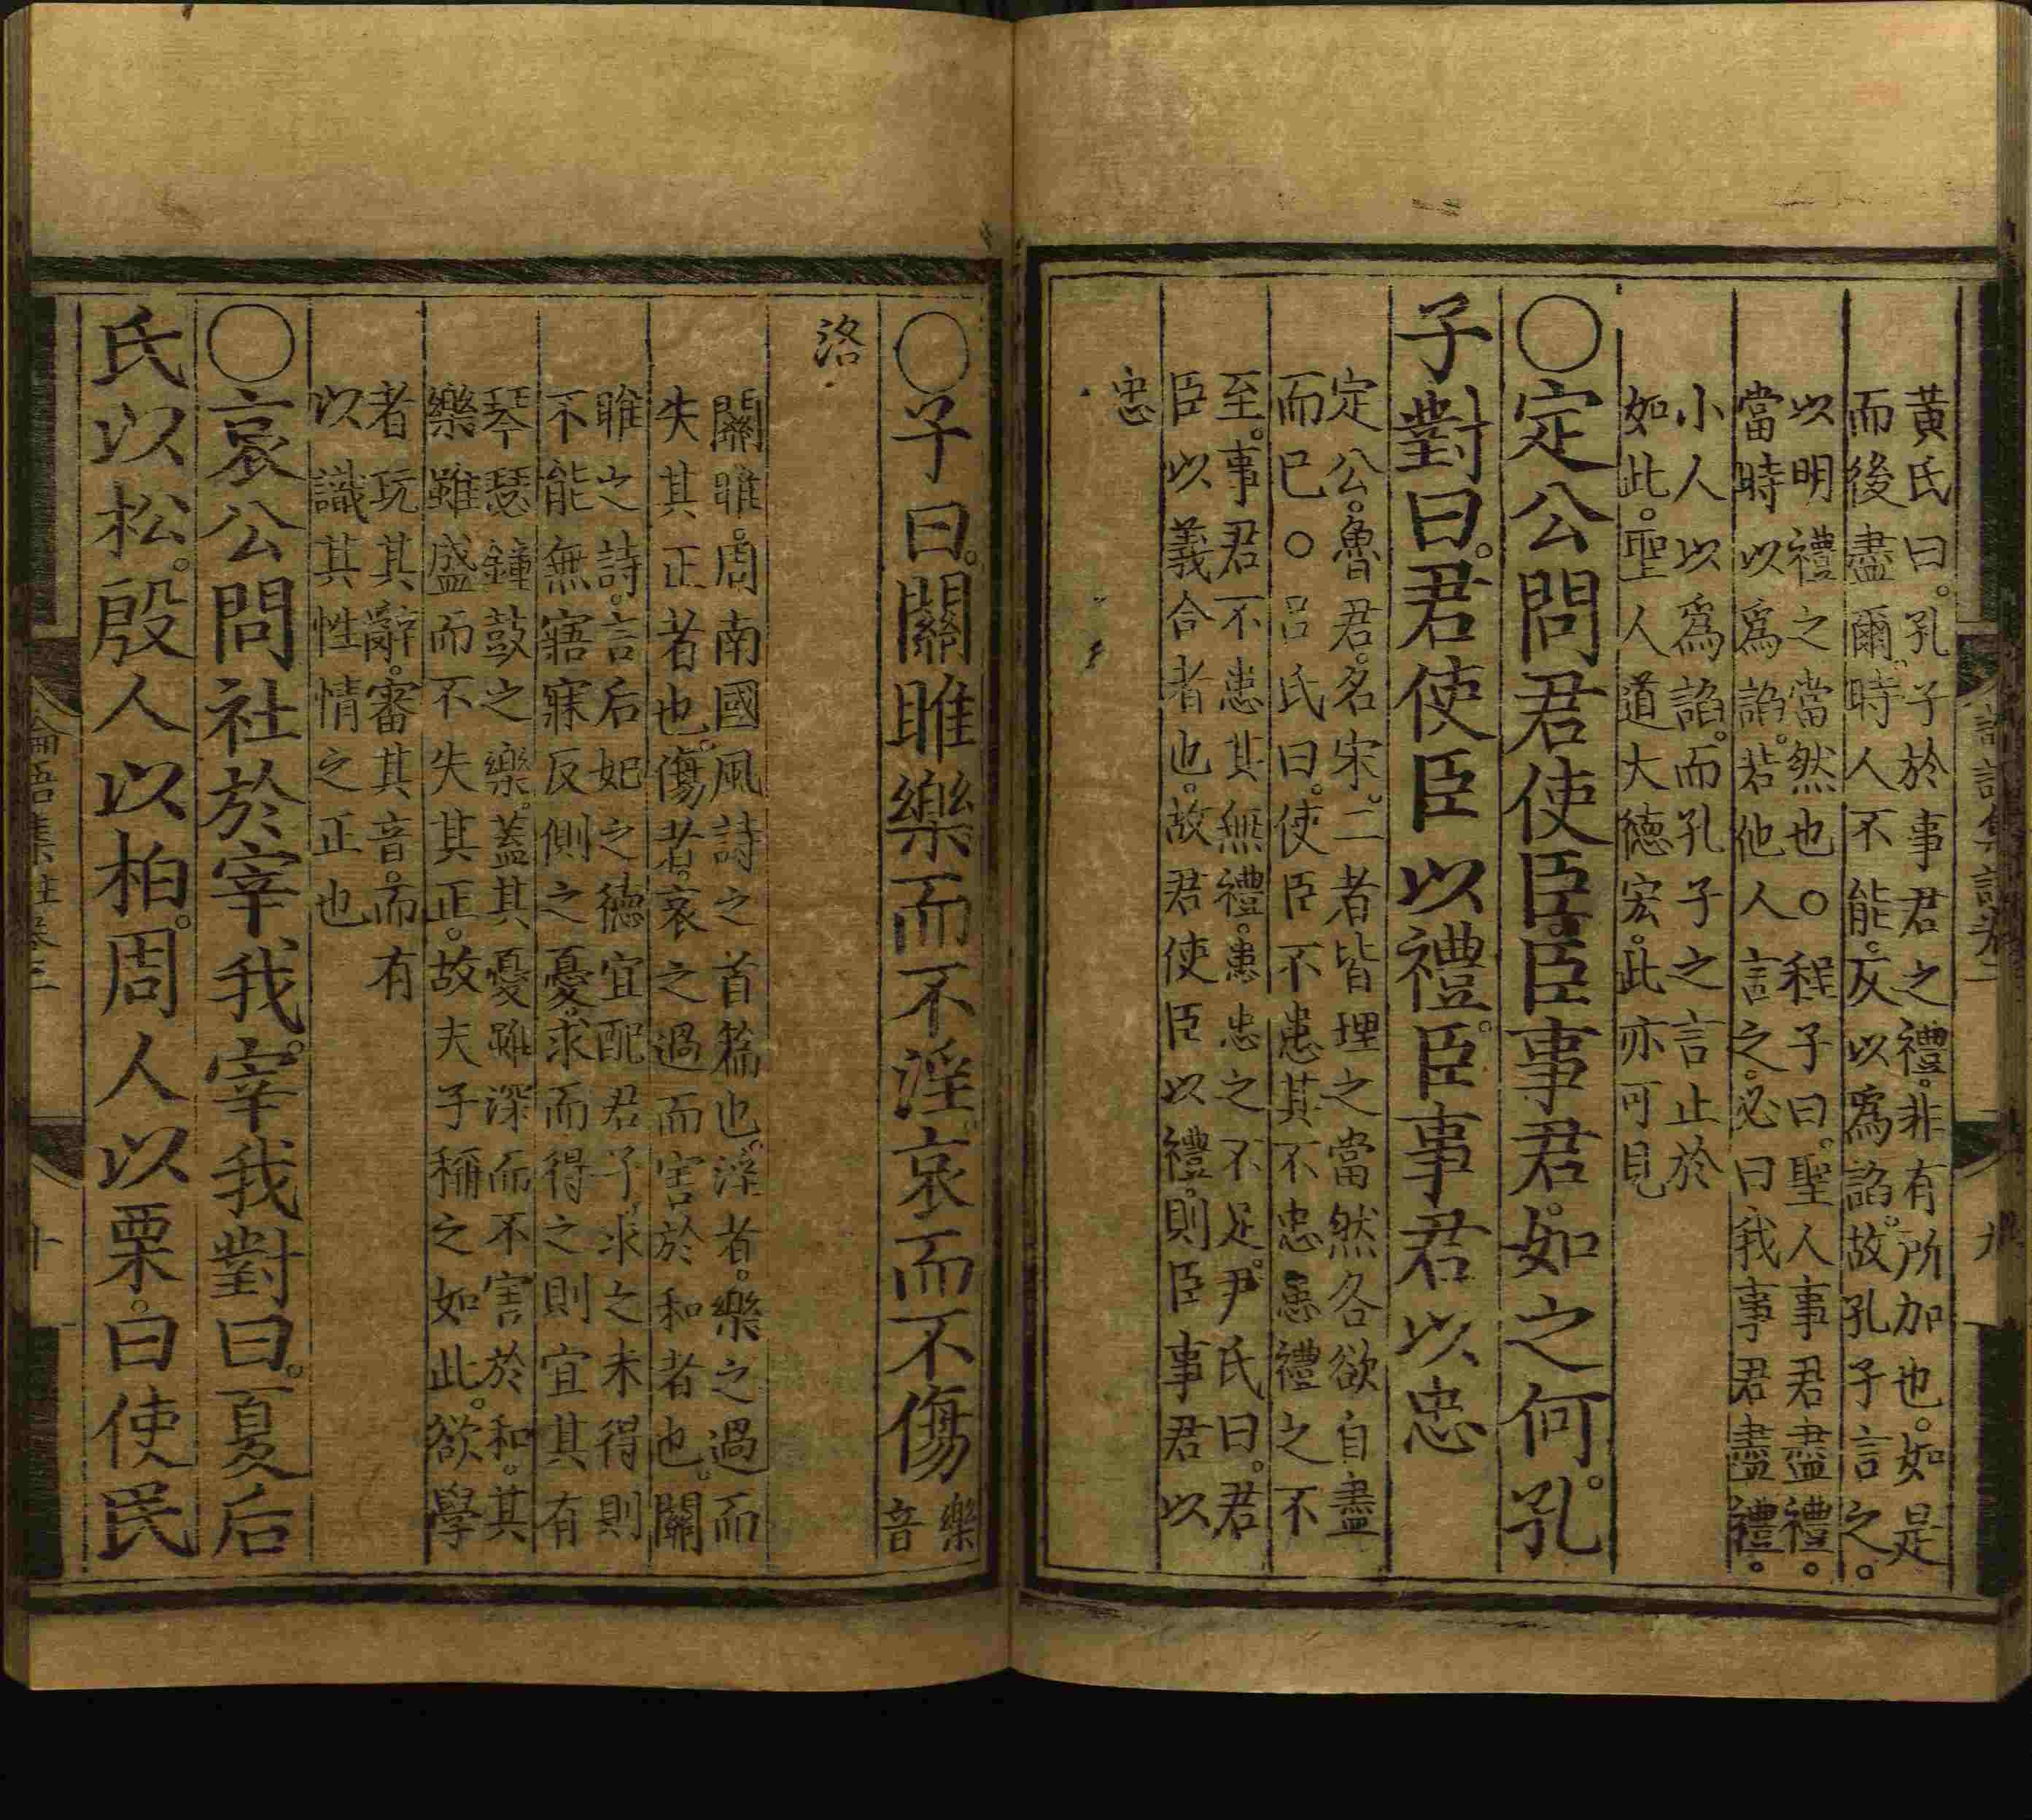 黃氏曰。孔子於事君之禮。非有所加也。如是
而後盡爾。時人不能。反以爲諂。故孔子言之。
以明禮之當然也○程子曰。聖人事君盡禮。
當時以爲諂。若他人言之。必曰我事君盡禮。
小人以爲諂。而孔子之言止於
如此。聖人道大德宏。此亦可見
○定公問君使臣。臣事君。如之何。孔
子對曰。君使臣以禮。臣事君以忠
定公。魯君。名宋。二者皆理之當然各欲自盡
而已○呂氏曰。使臣不患其不忠患禮之不
至。事君不患其無禮。患忠之不足。尹氏曰。君
臣以義合者也。故君使臣以禮。則臣事君以
忠
○子曰。關雎樂而不淫。哀而不傷樂
音
洛
關雎。周南國風詩之首篇也。淫者。樂之過而
失其正者也。傷者。哀之過而害於和者也。關
雎之詩。言后妃之德宜配君子。求之未得則
不能無寤寐反側之憂。求而得之則宜其有
琴瑟鐘鼓之樂。蓋其憂雖深而不害於和。其
樂雖盛而不失其正。故夫子稱之如此。欲學
者玩其辭。審其音。而有
以識其性情之正也
○哀公問社於宰我。宰我對曰。夏后
氏以松。殷人以柏。周人以栗。曰使民
論語集註卷二
九
論語集註卷三
十